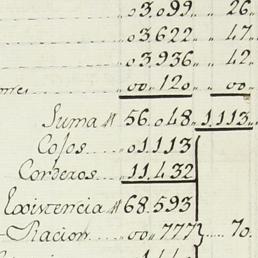 03,,099,, ,, 26
03,,622,, ,, 47
03,,936,, ,, 42
00,, 120,, ,, 00
Suma 56,,048,, 1,113
Cojos 01113
Corderos 11,432
Existencia 68,593
Racion 00,,777 70